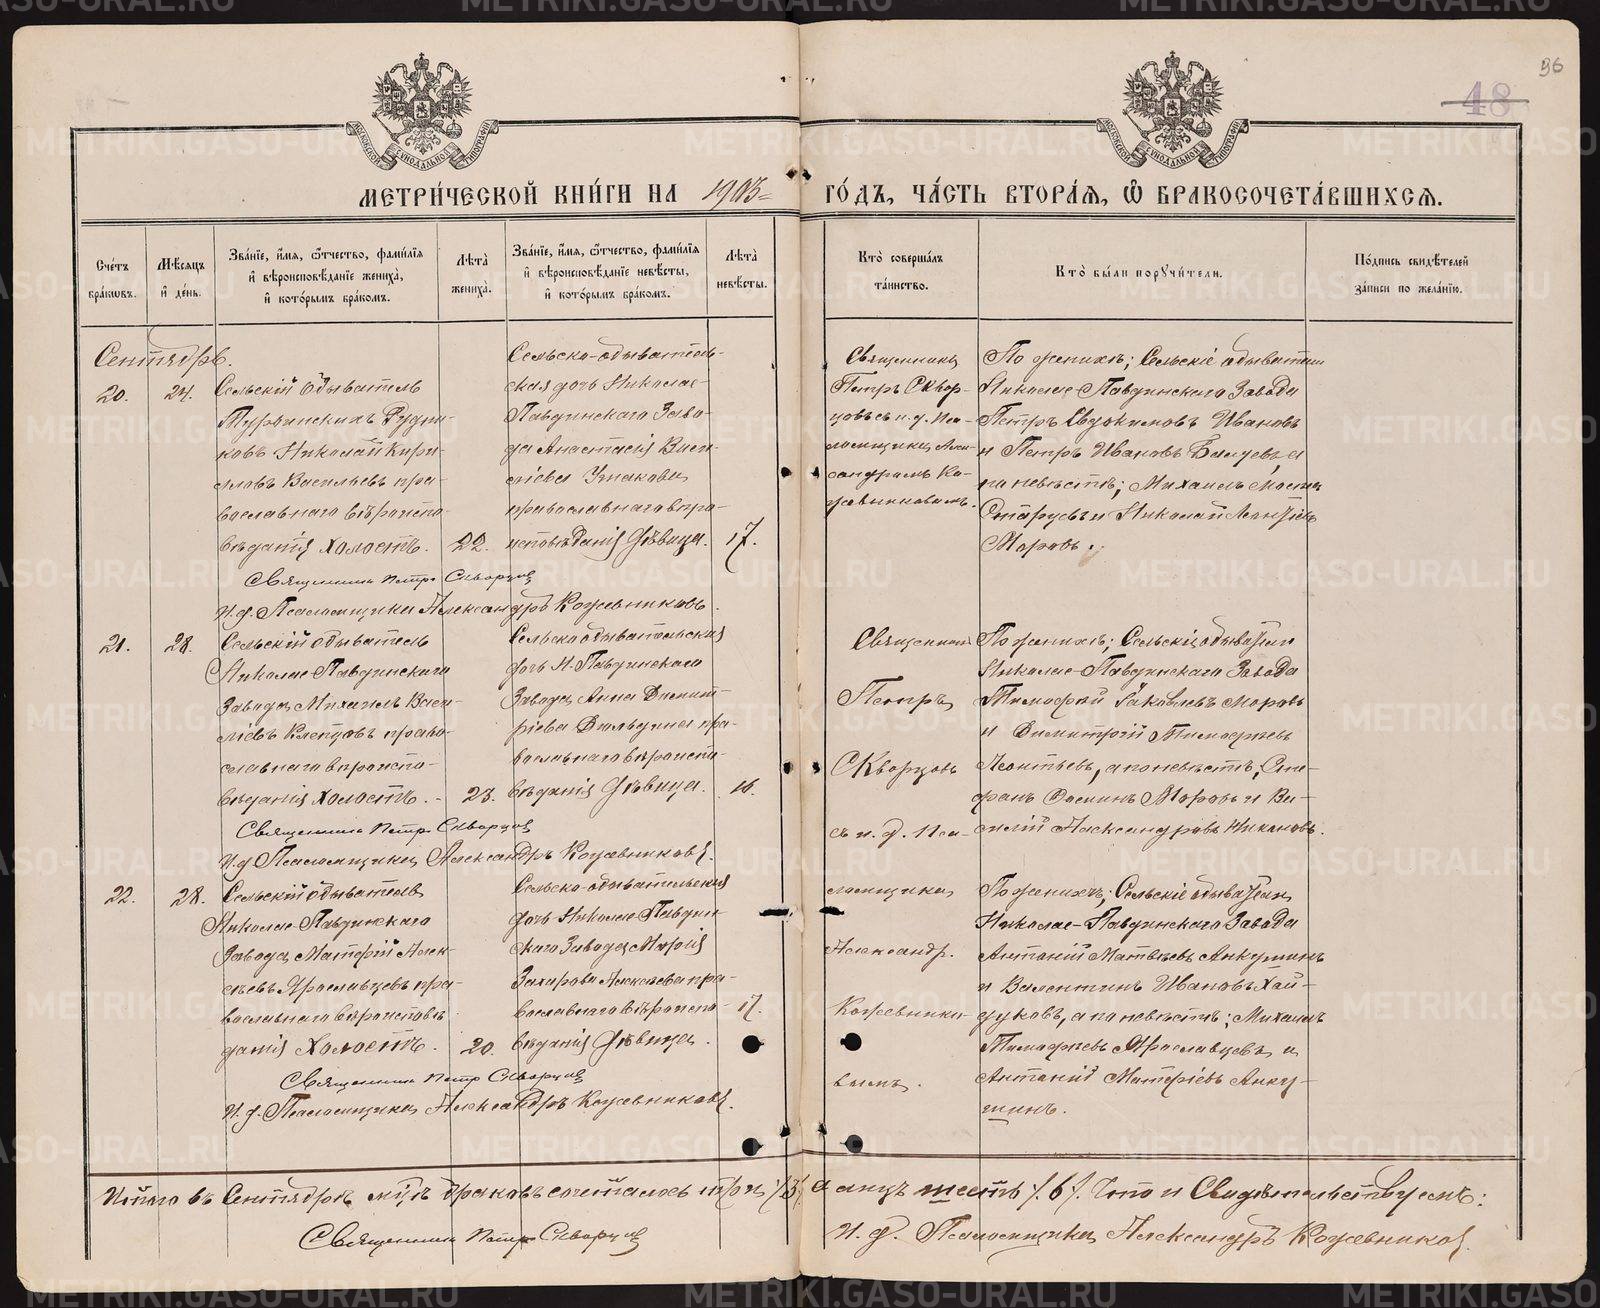 96
48
МЕТРИ́ЧЕСКОЙ КНИ́ГИ НА 1903 ГО́ДЪ, ЧА́СТЬ ВТОРА́Я, Ѡ БРАКОСОЧЕТА́ВШИХСЯ.
Сче́тъ бра́ковъ.
Мѣсяцъ и де́нь.
Зва́нїе, и́мя, ѻ́тчество, фами́лїя и вѣроисповѣ́данїе жениха̀, и кото́рымъ бра́комъ.
Лѣта̀ жениха̀.
Зва́нїе, и́мя, ѻ́тчество, фами́лїя и вѣроисповѣ́данїе невѣ́сты, и кото́рымъ бра́комъ.
Лѣта̀ невѣ́сты.
Кто̀ соверша́лъ та́инство.
Кто̀ бы́ли поручи́тели.
По́дпись свидѣ́телей за́писи по жела́нїю.
Сентябрь.
20.
24.
Сельскій обыватель
Турьинскихъ Рудни-
ковъ Николай Кири-
лловъ Васильевъ пра-
вославнаго вѣроиспо-
вѣданія Холостъ.
22.
Сельско-обыватель-
ская дочь Николае-
Павдинскаго Заво-
да Анастасія Васи-
ліева Ушакова
православнаго вѣро-
исповѣданія Дѣвица.
17.
Священникъ
Петръ Сквор-
цовъ съ и. д. Пса-
ломщика Алек-
сандромъ Ко-
жевниковымъ.
По женихѣ; Сельскіе обыватели
Николае-Павдинскаго Завода
Петръ Евдокимовъ Ивановъ
и Петръ Ивановъ
по невѣстѣ; Михаилъ
и Николай
Моровъ.
Священникъ Петръ Скворцовъ
И. д. Псаломщика Александръ Кожевниковъ.
21.
28.
Сельскій обыватель
Николае-Павдинскаго
Завода Михаилъ Васи-
ліевъ Клепцовъ право-
славнаго вѣроиспо-
вѣданія Холостъ.
23.
Сельско обывательская
дочь Н. Павдинскаго
Завода Анна Димит-
ріева пра-
вославнаго вѣроиспо-
вѣданія Дѣвица.
16.
Священникъ
Петръ
Скворцовъ
съ и. д. Пса-
По женихѣ; Сельскіе обыватели
Николае-Павдинскаго Завода
Тимофей Яковлевъ Моровъ
и Димитрій Тимофѣевъ
Леонтьевъ, а по невѣстѣ, Сте-
фанъ Моровъ и Ва-
силій Александровъ
Священникъ Петръ Скворцовъ
И. д Псаломщика Александръ Кожевниковъ.
22.
28.
Сельскій обыватель
Николае-Павдинскаго
Завода Матфій Алек-
сѣевъ Ярославцевъ пра-
вославнаго вѣроисповѣ-
данія Холостъ.
20.
Сельско-обывательская
дочь Николае-Павдин-
скаго Завода Марія
Захарова Алексѣева пра-
вославнаго вѣроиспо-
вѣданія Дѣвица.
17.
ломщика
Александр.
Кожевнико-
вымъ.
По женихѣ; Сельскіе обыватели
Николае-Павдинскаго Завода
Антоній Матвѣевъ Анкушинъ
и Валентинъ Ивановъ Хай-
дуковъ, а по невѣстѣ; Михаилъ
Тимофѣевъ Ярославцевъ и
Антоній Матфіевъ Анку-
шинъ.
Священникъ Петръ Скворцовъ
И. д. Псаломщика Александръ Кожевниковъ.
Итого въ Сентябрѣ мцѣ браковъ сочеталось три /3/ а лицъ шесть /6/. Что и Свидѣтельствуемъ:
Священникъ Петръ Скворцовъ
И. д. Псаломщика Александръ Кожевниковъ.
METRIKI.GASO-URAL.RU